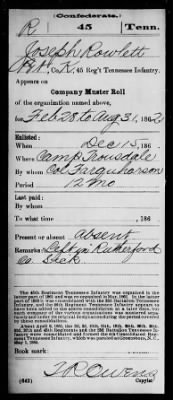 (Confederate.)
R 45 Tenn.
Joseph Rowlett
Pvt, Co. K, 45 Reg't Tennessee Infantry.
Appears on
Company Muster Roll
of the organization named above,
for Feb 28 to Aug 31, 1862
Enlisted:
When Dec 15, 186
Where Camp Trousdale
By whom Col Farquharson
Period 12 Mo
Last paid:
By whom
To what time , 186
Present or absent absent
Remarks: Left in Rutherford
Co. Sick
Book mark:
J R Owens
(642) Copyist.